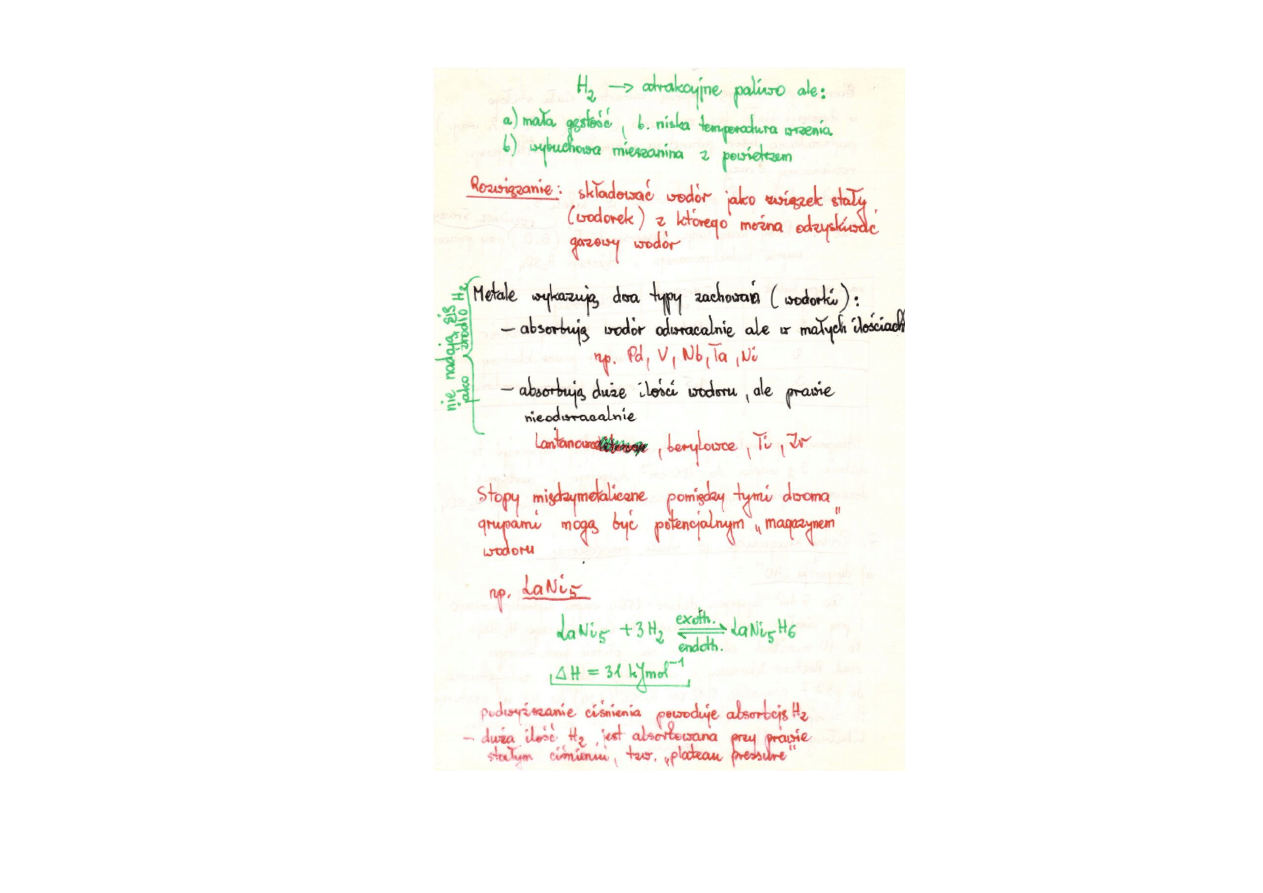 H2 → atrakcyjne paliwo ale:
a) mała gęstość, b. niska temperatura wrzenia
b) wybuchowa mieszanina z powietrzem
Rozwiązanie: składować wodór jako związek stały
(wodorek) z którego można odzyskiwać
gazowy wodór
nie nadają się
jako źródło H2
Metale wykazują dwa typy zachowań (wodorki):
– absorbują wodór odwracalnie ale w małych ilościach
np. Pd, V, Nb, Ta, Ni
– absorbują duże ilości wodoru, ale prawie
nieodwracalnie
Lantanowce, berylowce, Ti, Zr
Stopy międzymetaliczne pomiędzy tymi dwoma
grupami mogą być potencjalnym „magazynem"
wodoru
np. LaNi5
LaNi5 + 3H2 exoth. ⇌ endoth. LaNi5H6
ΔH = 31 kJmol⁻¹
podwyższanie ciśnienia powoduje absorbcję H2
– duża ilość H2 jest absorbowana przy prawie
stałym ciśnieniu, tzw. „plateau pressure"